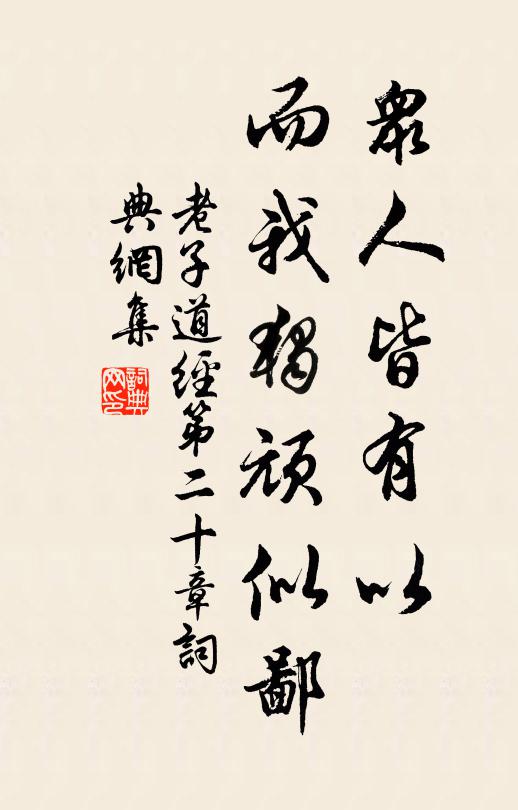 眾人皆有以
而我獨頑似鄙
老子道經第二十章詞
典網集
詞典網印